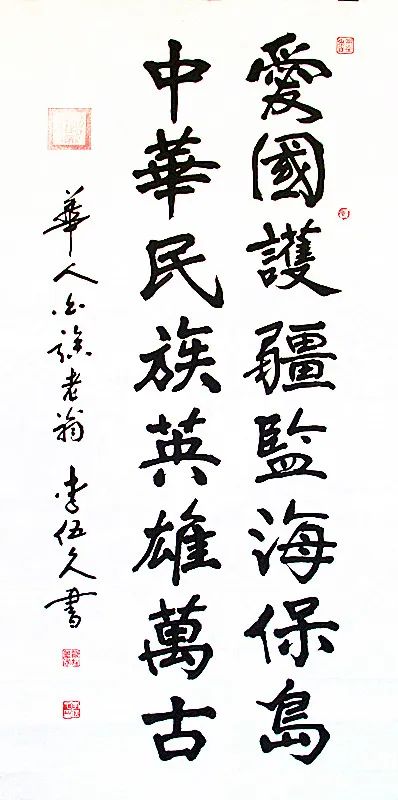 愛國護疆監海保島
中華民族英雄萬古
華人白族老翁 李伍久書